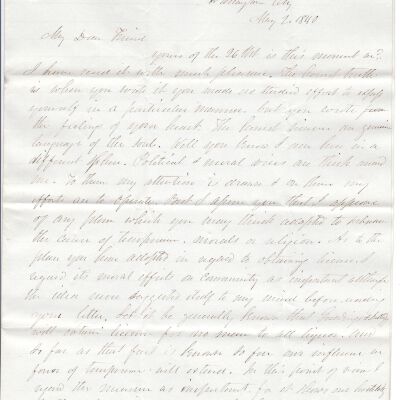 Washington City
May 2. 1840
My Dear Friend
yours of the 26 Ult. is this moment recd.
I have read it with much pleasure. The honest truth
is when you wrote it you made no studied effort to
yourself in a particular manner but you wrote from
the feelings of your heart. The honest sincere
language of the soul. Well you know I am here in a
different sphere. Political & moral are thick around
me. To them my attention is drawn & on them my
efforts are to operate. But I assure you that I approve
of any plan which you may think adapted to advance
the cause of temperance, morals or religion. As to the
plan you have adopted in regard to obtaining license I
regard its moral effects on community as important although
the idea never suggested itself to my mind before reading
your letter. Let it be generally known that
will obtain license for no to sell liquor. And
so far as that fact is known so far our influence in
favor of temperance will extend. In this point of view I
regard the measure as important for it shows our